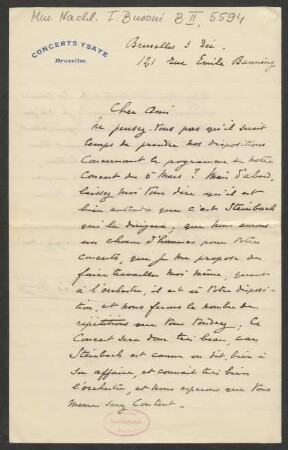 Mus. Nachl. F. Busoni B II, 5594
CONCERTS YSAYE
Bruxelles.
Bruxelles 3 Déc.
121 rue Emile Banning
Cher Ami
Ne pensez-vous pas qu'il serait
temps de prendre nos dispositions
concernant le programme de notre
Concert du 6 Mars ? Mais d'abord,
laissez moi vous dire qu'il est
bien entendu que c'est Steinbach
qui le dirigera ; que nous aurons
un chœur d'hommes pour votre
concerto, que je me propose de
faire travailler moi même, quant
à l'orchestre, il est à votre disposi-
tion, et nous ferons le nombre de
répétitions que vous voudrez ; Ce
Concert sera donc très beau, car
Steinbach est comme on dit, bien à
son affaire, et connait très bien
l'orchestre, et nous espérons que vous
même serez content.